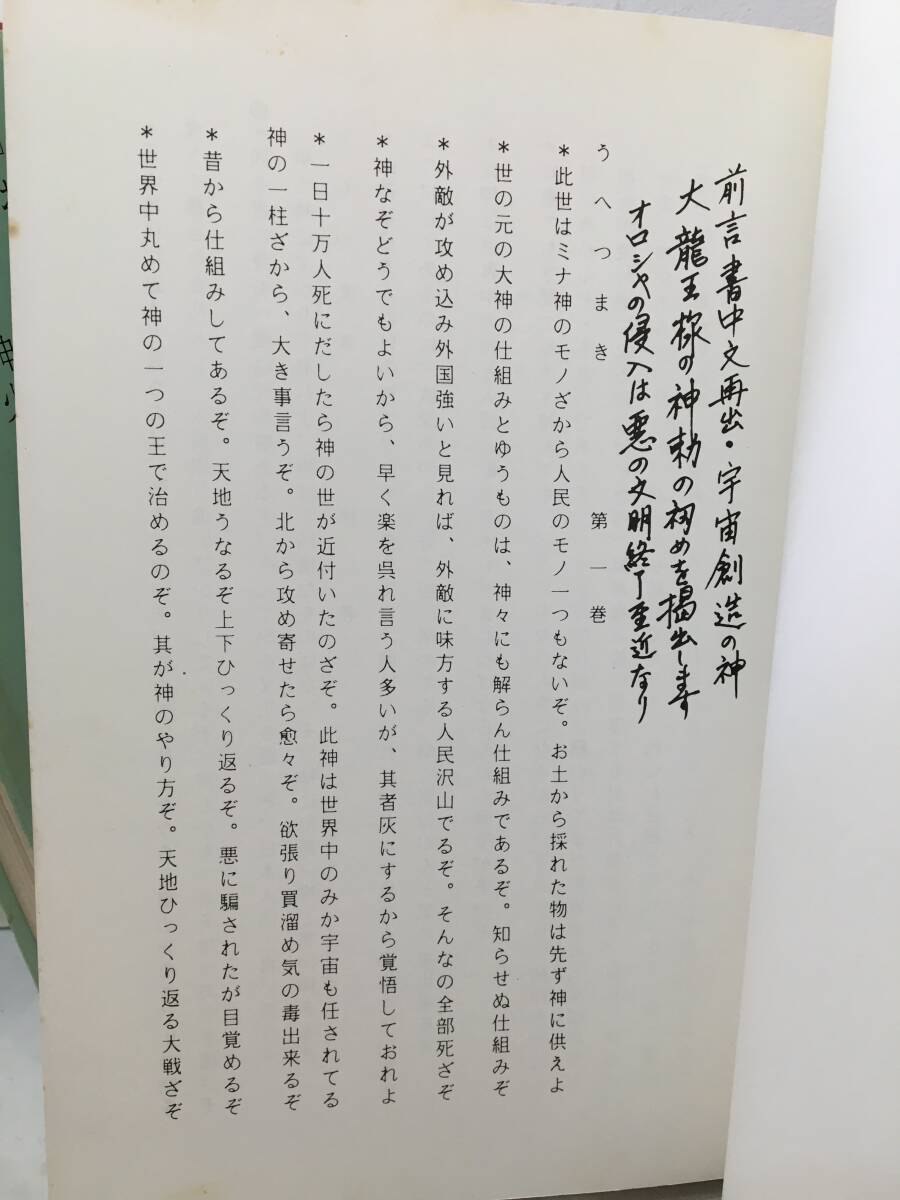 前言書中文再出・宇宙創造の神
大龍王様の神勅の初めを掲出します
オロシャの侵入は悪の文明終了至近なり
うへつまき　第一巻
＊此世はミナ神のモノざから人民のモノ一つもないぞ。お土から採れた物は先ず神に供えよ
＊世の元の大神の仕組みとゆうものは、神々にも解らん仕組みであるぞ。知らせぬ仕組みぞ
＊外敵が攻め込み外国強いと見れば、外敵に味方する人民沢山でるぞ。そんなの全部死ざぞ
＊神なぞどうでもよいから、早く楽を呉れ言う人多いが、其者灰にするから覚悟しておれよ
＊一日十万人死にだしたら神の世が近付いたのざぞ。此神は世界中のみか宇宙も任されてる
神の一柱ざから、大き事言うぞ。北から攻め寄せたら愈々ぞ。欲張り買溜め気の毒出来るぞ
＊昔から仕組みしてあるぞ。天地うなるぞ上下ひっくり返るぞ。悪に騙されたが目覚めるぞ
＊世界中丸めて神の一つの王で治めるのぞ。其が神のやり方ぞ。天地ひっくり返る大戦ざぞ